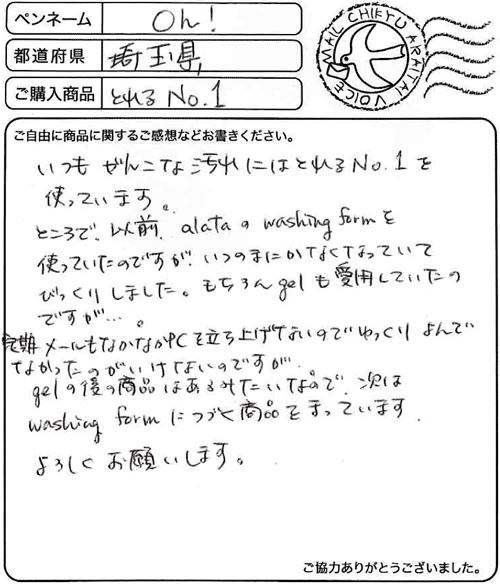 ペンネーム Oh!
都道府県 埼玉県
ご購入商品 とれるNo.1
MAIL CHIKYU ARAITAI VOICE
ご自由に商品に関するご感想などお書きください。
いつも がんこな汚れにはとれるNo.1を
使っています。
ところで、以前、alataのwashing formを
使っていたのですが、いつのまにかなくなっていて
びっくりしました。もちろんgelも愛用していたの
ですが…。
定期メールもなかなかPCを立ち上げないのでゆっくりよんで
なかったのがいけないのですが、
gelの後の商品はあるみたいなので、次は
washing formにつづく商品をまっています。
よろしくお願いします。
ご協力ありがとうございました。